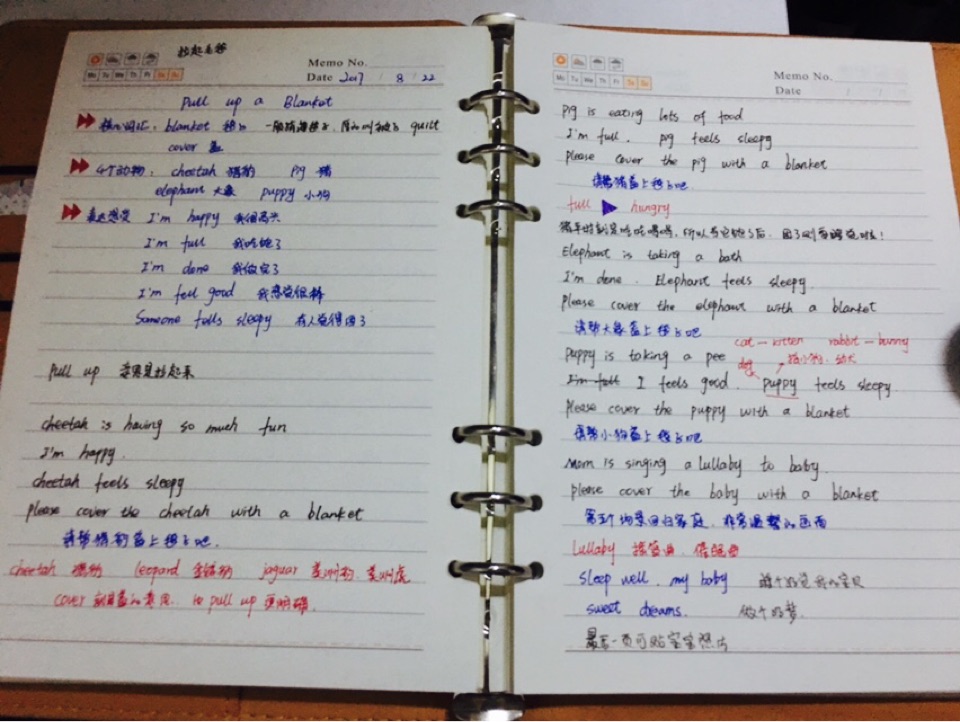 拉起毛毯
Memo No.
Mo Tu We Th Fr Sa Su
Date 2017 / 8 / 22
Pull up a Blanket
核心词汇: blanket 毯子 quilt
cover 盖
4个动物: cheetah 猎豹 pig 猪
elephant 大象 puppy 小狗
表达感受 I'm happy 我很高兴
I'm full 我吃饱了
I'm done 我做完了
I'm feel good 我感觉很棒
Someone falls sleepy 有人觉得困了
Pull up 意思是拉起来
cheetah is having so much fun
I'm happy.
cheetah feels sleepy
please cover the cheetah with a blanket
请帮猎豹盖上毯子吧.
cheetah 猎豹 leopard 金钱豹 jaguar 美洲豹, 美洲虎
cover 就是盖的意思, 比 pull up 更明确.
Memo No.
Mo Tu We Th Fr Sa Su
Date / /
pig is eating lots of food
I'm full. pig feels sleepy
please cover the pig with a blanket
请帮猪盖上毯子吧
full hungry
猪平时就是吃吃喝喝, 所以当它饱了后, 困了则要睡觉啦!
Elephant is taking a bath
I'm done. Elephant feels sleepy.
please cover the elephant with a blanket
请帮大象盖上毯子吧
cat - kitten rabbit - bunny
puppy is taking a pee dog 指小狗, 幼犬
I'm full I feels good. puppy feels sleepy.
please cover the puppy with a blanket
请帮小狗盖上毯子吧
Mom is singing a lullaby to baby.
please cover the baby with a blanket
第五个场景回归家庭, 非常温馨的画面
Lullaby 摇篮曲, 催眠曲
sleep well, my baby 睡个好觉我的宝贝
sweet dreams. 做个好梦.
最后一页可贴宝宝照片